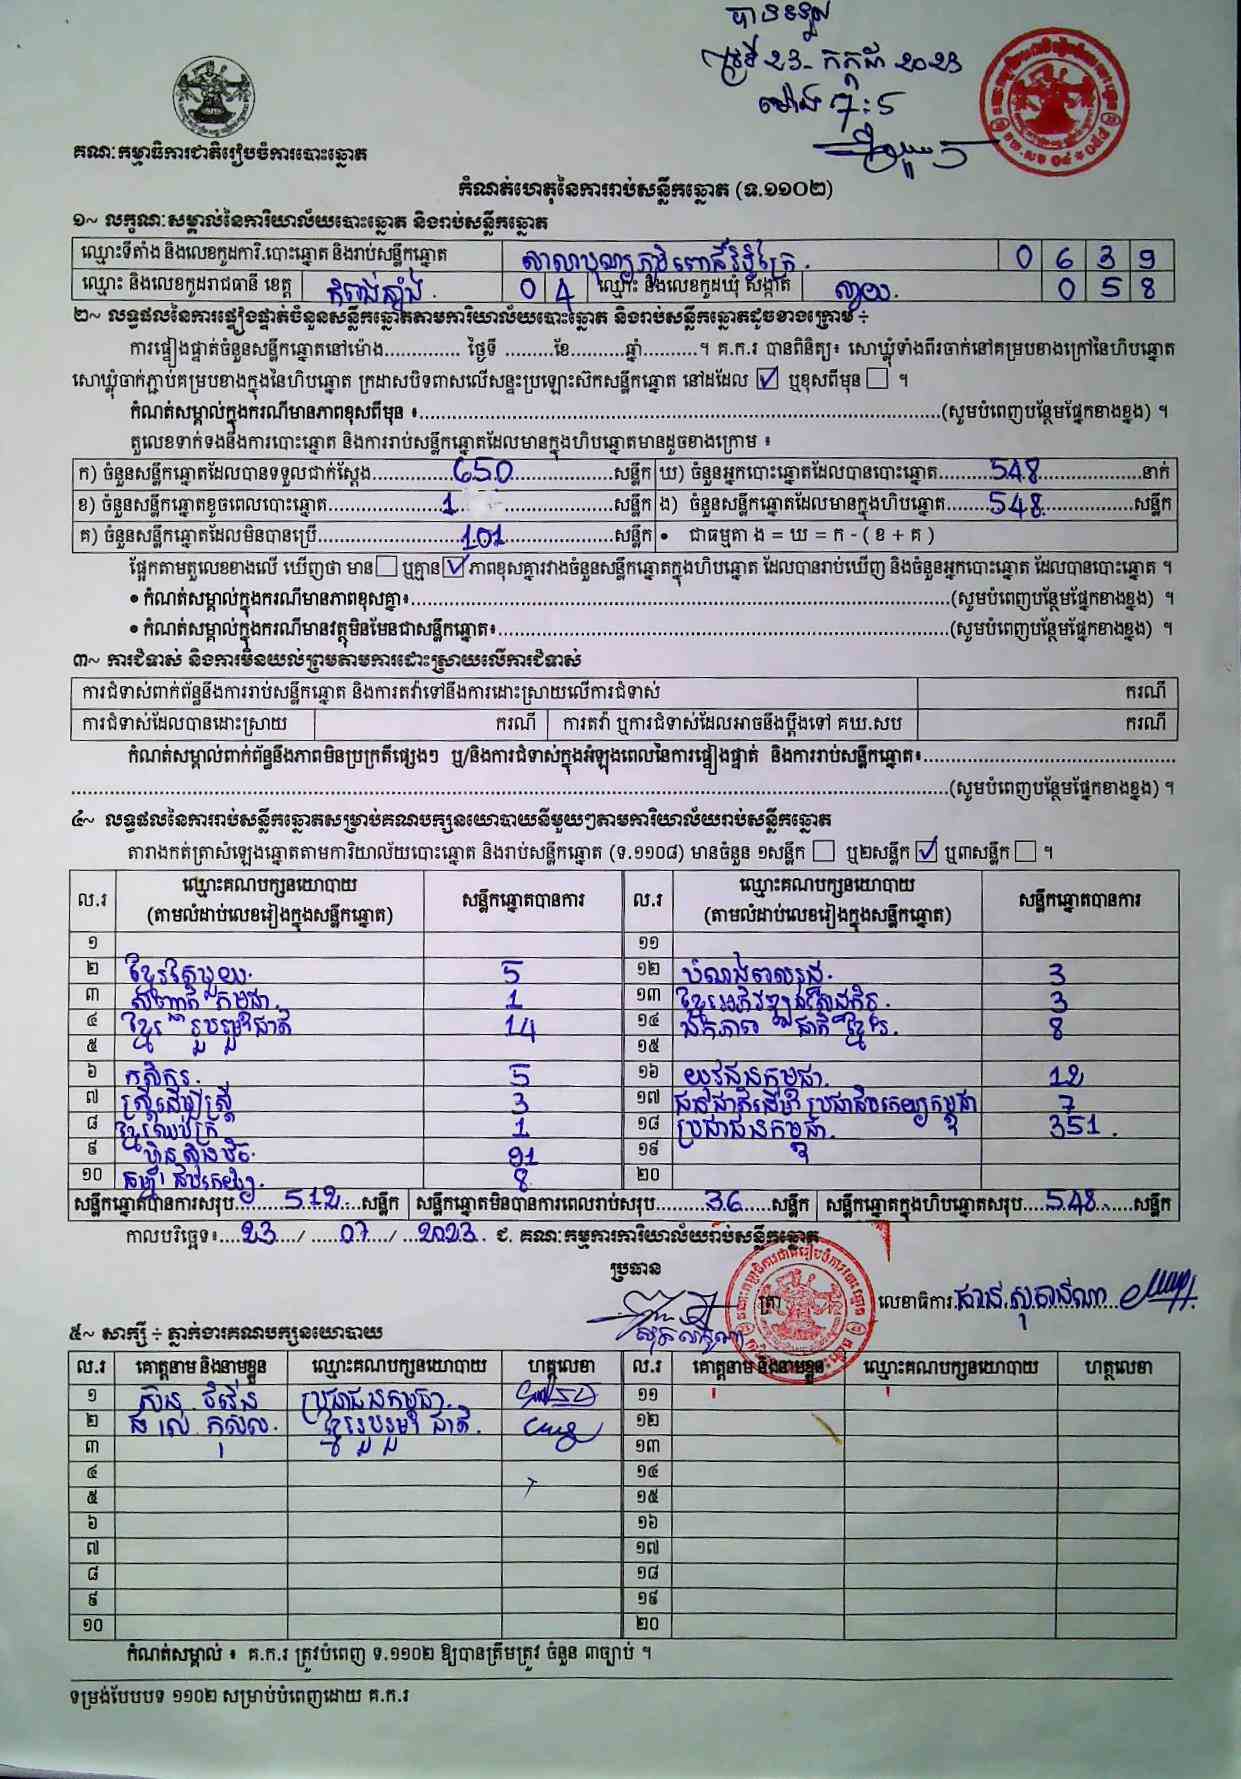 បានទទួល
ថ្ងៃទី 23- កក្កដា 2023
ម៉ោង 7:5
គណៈកម្មាធិការជាតិរៀបចំការបោះឆ្នោត
កំណត់ហេតុនៃការរាប់សន្លឹកឆ្នោត (ទ.១១០២)
១~ លក្ខណៈសម្គាល់នៃការិយាល័យបោះឆ្នោត និងរាប់សន្លឹកឆ្នោត
ឈ្មោះទីតាំង និងលេខកូដការិ.បោះឆ្នោត និងរាប់សន្លឹកឆ្នោត សាលាបុណ្យភូមិពោធិ៍ 0 6 3 9
ឈ្មោះ និងលេខកូដរាជធានី ខេត្ត កំពង់ឆ្នាំង. 0 4 ឈ្មោះ និងលេខកូដឃុំ សង្កាត់ 0 5 8
២~ លទ្ធផលនៃការផ្ទៀងផ្ទាត់ចំនួនសន្លឹកឆ្នោតតាមការិយាល័យបោះឆ្នោត និងរាប់សន្លឹកឆ្នោតដូចខាងក្រោម ÷
ការផ្ទៀងផ្ទាត់ចំនួនសន្លឹកឆ្នោតនៅម៉ោង.............. ថ្ងៃទី .........ខែ..........ឆ្នាំ..........។ គ.ក.រ បានពិនិត្យ៖ សោឃ្លុំទាំងពីរចាក់នៅគម្របខាងក្រៅនៃហិបឆ្នោត
សោឃ្លុំចាក់ភ្ជាប់គម្របខាងក្នុងនៃហិបឆ្នោត ក្រដាសបិទពាសលើសន្ទះប្រឡោះស៊កសន្លឹកឆ្នោត នៅដដែល ☑ ឬខុសពីមុន ☐ ។
កំណត់សម្គាល់ក្នុងករណីមានភាពខុសពីមុន ៖..........(សូមបំពេញបន្ថែមផ្នែកខាងខ្នង) ។
តួលេខទាក់ទងនឹងការបោះឆ្នោត និងការរាប់សន្លឹកឆ្នោតដែលមានក្នុងហិបឆ្នោតមានដូចខាងក្រោម ៖
ក) ចំនួនសន្លឹកឆ្នោតដែលបានទទួលជាក់ស្តែង..........650..........សន្លឹក ឃ) ចំនួនអ្នកបោះឆ្នោតដែលបានបោះឆ្នោត..........548..........នាក់
ខ) ចំនួនសន្លឹកឆ្នោតខូចពេលបោះឆ្នោត..........1..........សន្លឹក ង) ចំនួនសន្លឹកឆ្នោតដែលមានក្នុងហិបឆ្នោត..........548..........សន្លឹក
គ) ចំនួនសន្លឹកឆ្នោតដែលមិនបានប្រើ..........101..........សន្លឹក • ជាធម្មតា ង = ឃ = ក - ( ខ + គ )
ផ្អែកតាមតួលេខខាងលើ ឃើញថា មាន ☐ ឬគ្មាន ☑ ភាពខុសគ្នារវាងចំនួនសន្លឹកឆ្នោតក្នុងហិបឆ្នោត ដែលបានរាប់ឃើញ និងចំនួនអ្នកបោះឆ្នោត ដែលបានបោះឆ្នោត ។
• កំណត់សម្គាល់ក្នុងករណីមានភាពខុសគ្នា៖..........(សូមបំពេញបន្ថែមផ្នែកខាងខ្នង) ។
• កំណត់សម្គាល់ក្នុងករណីមានវត្ថុមិនមែនជាសន្លឹកឆ្នោត៖..........(សូមបំពេញបន្ថែមផ្នែកខាងខ្នង) ។
៣~ ការជំទាស់ និងការមិនយល់ព្រមតាមការដោះស្រាយលើការជំទាស់
ការជំទាស់ពាក់ព័ន្ធនឹងការរាប់សន្លឹកឆ្នោត និងការតវ៉ាទៅនឹងការដោះស្រាយលើការជំទាស់ ករណី
ការជំទាស់ដែលបានដោះស្រាយ ករណី ការតវ៉ា ឬការជំទាស់ដែលអាចនឹងប្តឹងទៅ គឃ.សប ករណី
កំណត់សម្គាល់ពាក់ព័ន្ធនឹងភាពមិនប្រក្រតីផ្សេងៗ ឬ/និងការជំទាស់ក្នុងអំឡុងពេលនៃការផ្ទៀងផ្ទាត់ និងការរាប់សន្លឹកឆ្នោត៖..........
..........(សូមបំពេញបន្ថែមផ្នែកខាងខ្នង) ។
៤~ លទ្ធផលនៃការរាប់សន្លឹកឆ្នោតសម្រាប់គណបក្សនយោបាយនីមួយៗតាមការិយាល័យរាប់សន្លឹកឆ្នោត
តារាងកត់ត្រាសំឡេងឆ្នោតតាមការិយាល័យបោះឆ្នោត និងរាប់សន្លឹកឆ្នោត (ទ.១១០៨) មានចំនួន ១សន្លឹក ☐ ឬ២សន្លឹក ☑ ឬ៣សន្លឹក ☐ ។
ល.រ ឈ្មោះគណបក្សនយោបាយ (តាមលំដាប់លេខរៀងក្នុងសន្លឹកឆ្នោត) សន្លឹកឆ្នោតបានការ ល.រ ឈ្មោះគណបក្សនយោបាយ (តាមលំដាប់លេខរៀងក្នុងសន្លឹកឆ្នោត) សន្លឹកឆ្នោតបានការ
១ ១១
២ ខ្មែរតែមួយ. 5 ១២ បំណងពលរដ្ឋ. 3
៣ សញ្ជាតិ កម្ពុជា. 1 ១៣ ខ្មែរអភិវឌ្ឍន៍សេដ្ឋកិច្ច. 3
៤ ខ្មែរ រួបរួមជាតិ 14 ១៤ ឯកភាព ជាតិ ខ្មែរ. 8
៥ ១៥
៦ កសិករ. 5 ១៦ យុវជនកម្ពុជា. 12
៧ ស្ត្រីដើម្បីស្ត្រី 3 ១៧ ជនជាតិដើម ប្រជាធិបតេយ្យកម្ពុជា 7
៨ ខ្មែរឈប់ក្រ 1 ១៨ ប្រជាជនកម្ពុជា. 351.
៩ ហ៊្វុនស៊ិនប៉ិច. 91 ១៩
១០ ធម្មាធិបតេយ្យ 8 ២០
សន្លឹកឆ្នោតបានការសរុប..........512..........សន្លឹក សន្លឹកឆ្នោតមិនបានការពេលរាប់សរុប..........36......សន្លឹក សន្លឹកឆ្នោតក្នុងហិបឆ្នោតសរុប....548.......សន្លឹក
កាលបរិច្ឆេទ៖....23..../......07..../ ...2023. ជ. គណៈកម្មការការិយាល័យរាប់សន្លឹកឆ្នោត
ប្រធាន
ត្រា
លេខាធិការ
៥~ សាក្សី ÷ ភ្នាក់ងារគណបក្សនយោបាយ
ល.រ គោត្តនាម និងនាមខ្លួន ឈ្មោះគណបក្សនយោបាយ ហត្ថលេខា ល.រ គោត្តនាម និងនាមខ្លួន ឈ្មោះគណបក្សនយោបាយ ហត្ថលេខា
១ ប្រជាជនកម្ពុជា. ១១
២ កុសល. ខ្មែររួបរួមជាតិ. ១២
៣ ១៣
៤ ១៤
៥ ១៥
៦ ១៦
៧ ១៧
៨ ១៨
៩ ១៩
១០ ២០
កំណត់សម្គាល់ ៖ គ.ក.រ ត្រូវបំពេញ ទ.១១០២ ឱ្យបានត្រឹមត្រូវ ចំនួន ៣ច្បាប់ ។
ទម្រង់បែបបទ ១១០២ សម្រាប់បំពេញដោយ គ.ក.រ